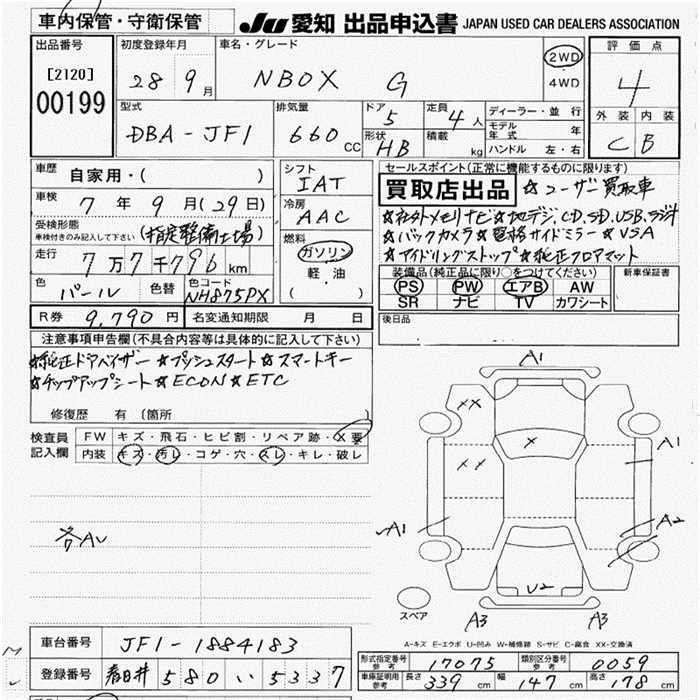 車内保管・守衛保管
JU 愛知 出品申込書 JAPAN USED CAR DEALERS ASSOCIATION
出品番号 初度登録年月 車名・グレード 評価点
[2120] 28 9月 NBOX G 2WD 4
00199 4WD
型式 排気量 ドア 5 定員 4人 ディーラー・並行 外装 内装
DBA-JF1 660cc 形状 HB 積載 kg モデル年式 年 C B
ハンドル 左・右
車歴 自家用・( ) シフト IAT セールスポイント(正常に機能するものに限ります)
車検 7年9月(29日) 冷房 AAC 買取店出品 ☆ユーザー買取車
受検形態 車検付きのみ記入して下さい (指定整備工場) ☆社外メモリナビ☆地デジ,CD,SD,USB,ラジオ
走行 7万7千796km 燃料 ガソリン 軽・油 ( ) ☆バックカメラ☆電格サイドミラー☆VSA
☆アイドリングストップ☆純正フロアマット
色 パール 色替 色コード NH875PX 装備品(純正品に限り○をつけてください) 新車保証書
PS PW エアB AW
SR ナビ TV カワシート
R券 9,790円 名変通知期限 月 日 後日品
注意事項申告欄(不具合内容等は具体的に記入して下さい)
☆純正ドアバイザー☆プッシュスタート☆スマートキー
☆チップアップシート☆ECON☆ETC
修復歴 有(箇所 )
検査員記入欄 FW キズ・飛石・ヒビ割・リペア跡・X要
内装 キズ・汚レ・コゲ・穴・スレ・キレ・破レ
A1
XX
X
A1
XX
各AU
A1
A2
U2
スペア
A3 A3
A-キズ E-エクボ U-凹み W-補修跡 S-サビ C-腐食 XX-交換済
車台番号 JF1-1884183
形式指定番号 参考 17075 類別区分番号 参考 0059
登録番号 春日井 580 い 5337
車庫証明用 参考 長さ 339cm 幅 147cm 高さ 178cm